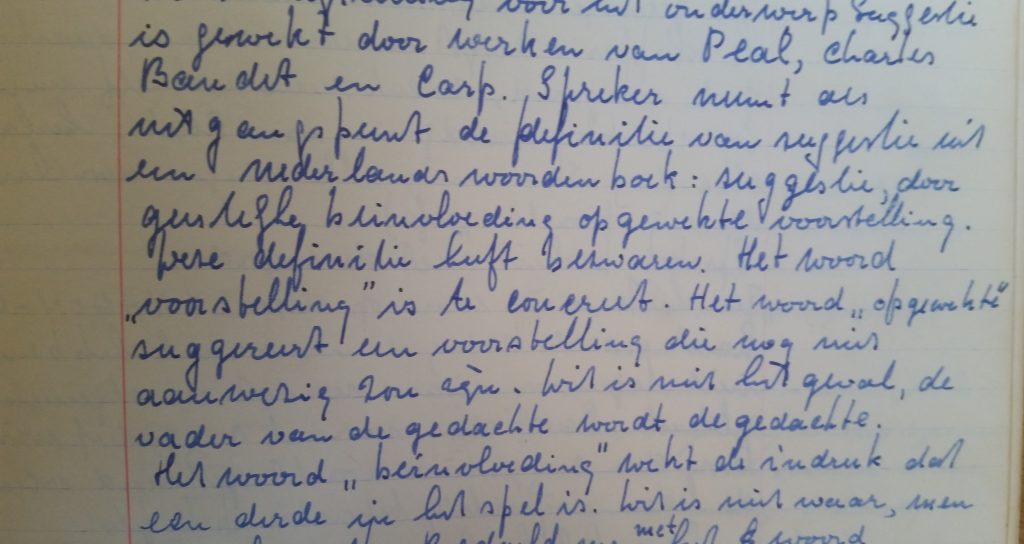 voor het onderwerp suggestie
is gewekt door werken van Peal, Charles
Baudet en Carp. Spreker neemt als
uitgangspunt de definitie van suggestie uit
een nederlands woordenboek: suggestie, door
geestelijke beinvloeding opgewekte voorstelling.
Deze definitie heeft bezwaren. Het woord
„voorstelling" is te concreet. Het woord „opgewekte"
suggereert een voorstelling die nog niet
aanwezig zou zijn. Dit is niet het geval, de
vader van de gedachte wordt de gedachte.
Het woord „beïnvloeding" wekt de indruk dat
een derde in het spel is. Dit is niet waar, men
met het woord